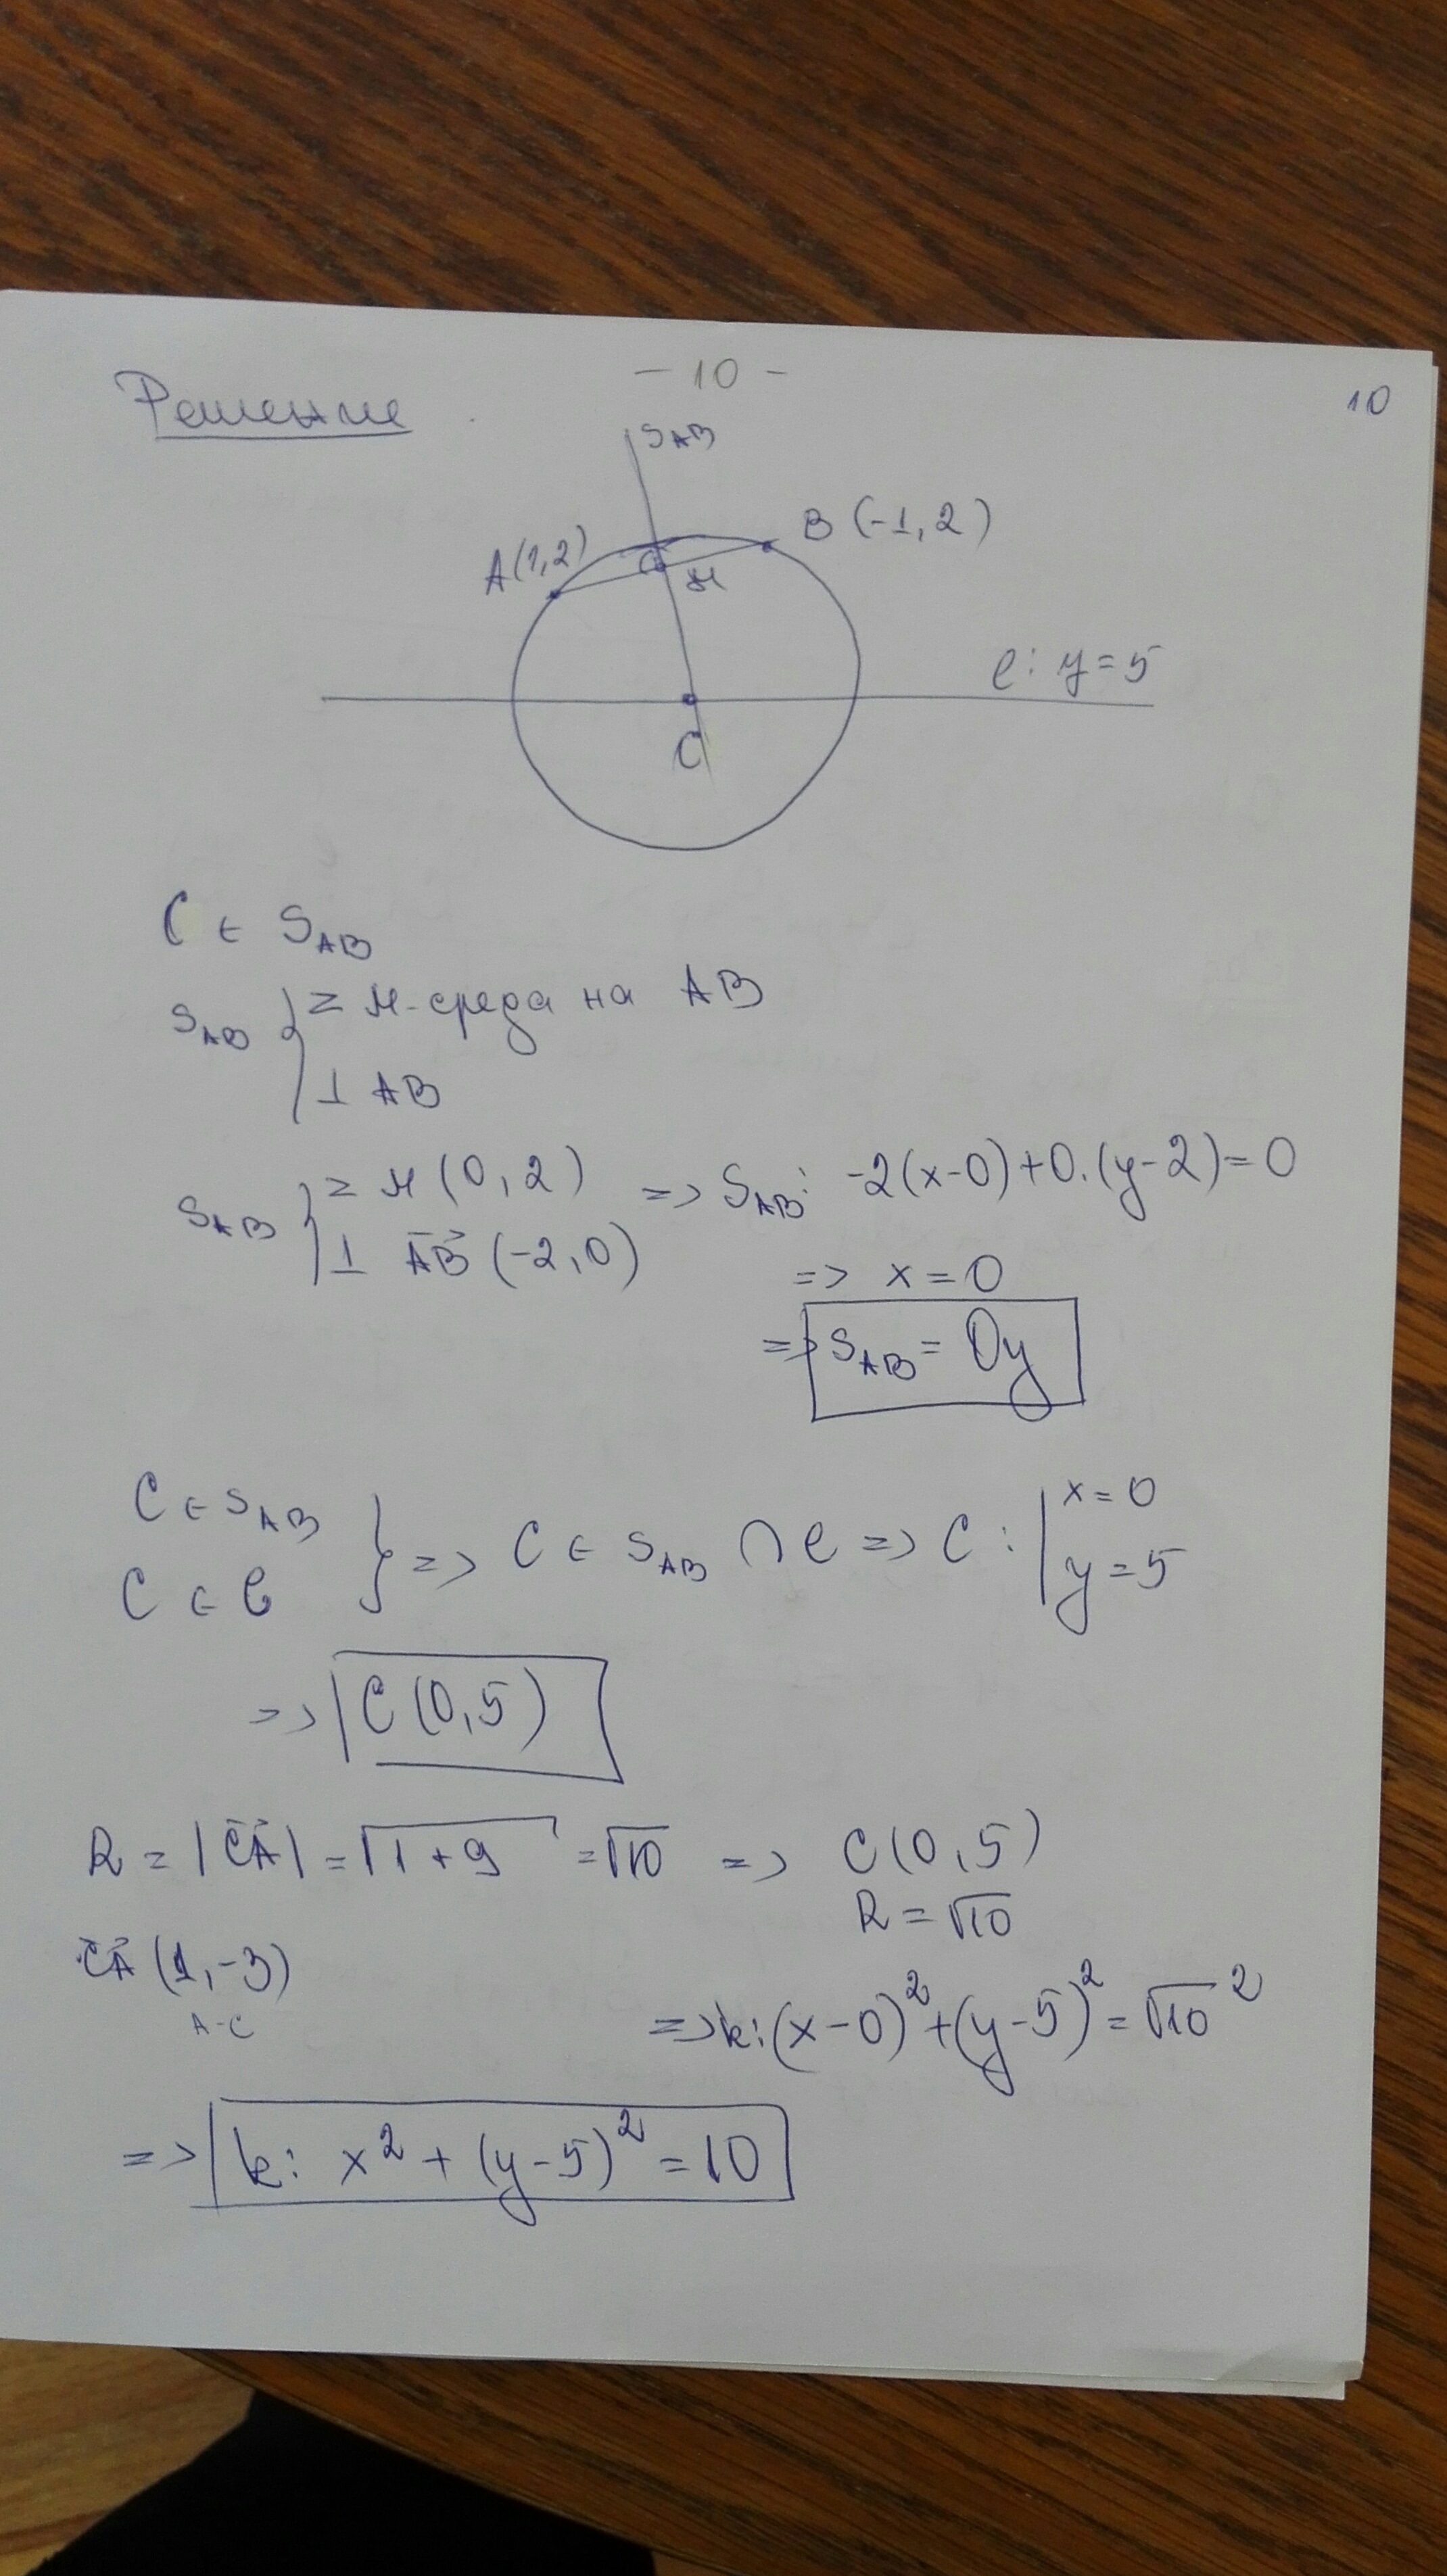 - 10 -
10
Решение
S_AB
A(1,2)
B(-1,2)
M
ℓ: y=5
C
C ∈ S_AB
S_AB { Z M-среда на AB
⊥ AB
S_AB { Z M(0,2) => S_AB: -2(x-0)+0.(y-2)=0
⊥ AB→(-2,0)
=> x=0
=> S_AB = Oy
C ∈ S_AB
C ∈ ℓ } => C ∈ S_AB ∩ ℓ => C: | x=0
y=5
=> C(0,5)
R = |CA→| = √(1+9) = √10 => C(0,5)
R = √10
CA→(1,-3)
A-C
=> k: (x-0)²+(y-5)² = √10²
=> k: x² + (y-5)² = 10